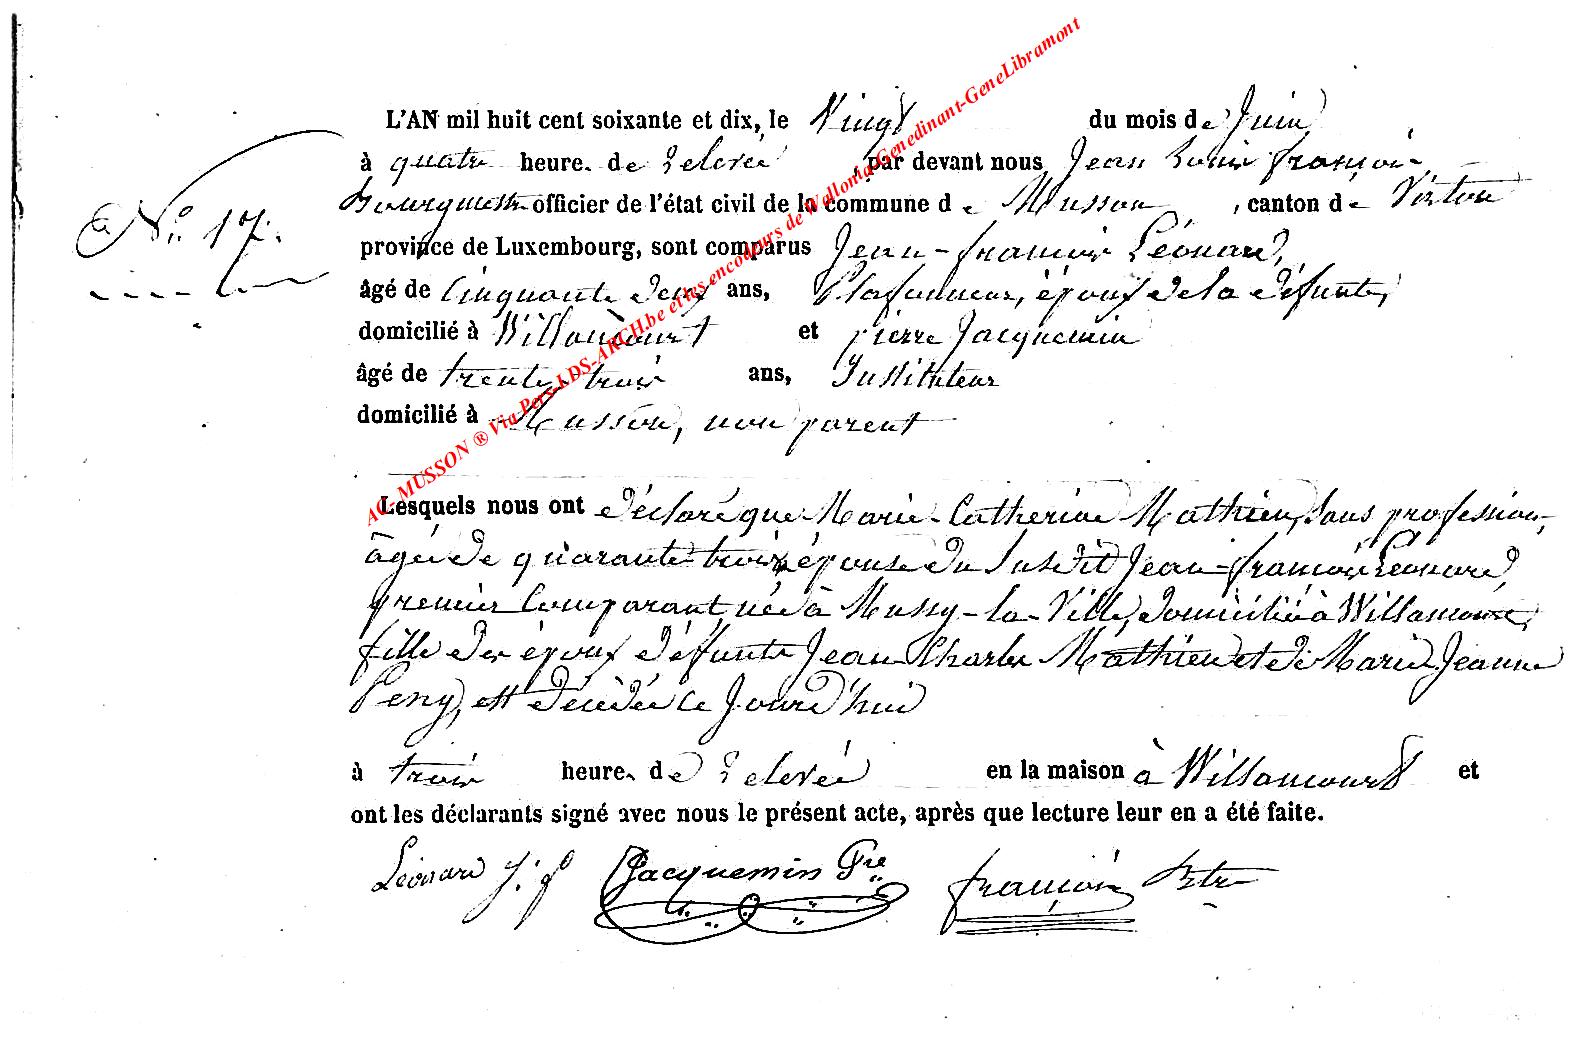 L'AN mil huit cent soixante et dix, le Vingt du mois de Juin
à quatre heure. de relevée , par devant nous Jean Louis françois
Bourgmestre officier de l'état civil de la commune de Musson, canton de Virton
N° 17.
province de Luxembourg, sont comparus Jean-francois Léonard,
âgé de Cinquante deux ans, Plafonneur, époux de la défunte,
domicilié à Willancourt et pierre Jacquemin
âgé de trente trois ans, Instituteur
domicilié à Musson, non parent
Lesquels nous ont déclaré que Marie-Catherine Mathieu, sans profession,
âgée de quarante trois, épouse du susdit Jean-francois Léonard,
premier Comparant, née à Mussy-la-Ville, domiciliée à Willancourt,
fille des époux défunts Jean Charles Mathieu et de Marie Jeanne
Peny, est décédée ce Jourd'hui
à trois heure. de relevée en la maison à Willancourt et
ont les déclarants signé avec nous le présent acte, après que lecture leur en a été faite.
Léonard J. f Jacquemin Pre françois Btre
AC-MUSSON ® Via Pers-LDS-ARCH.be et les encodeurs de Wallonia-Genedinant-GeneLibramont